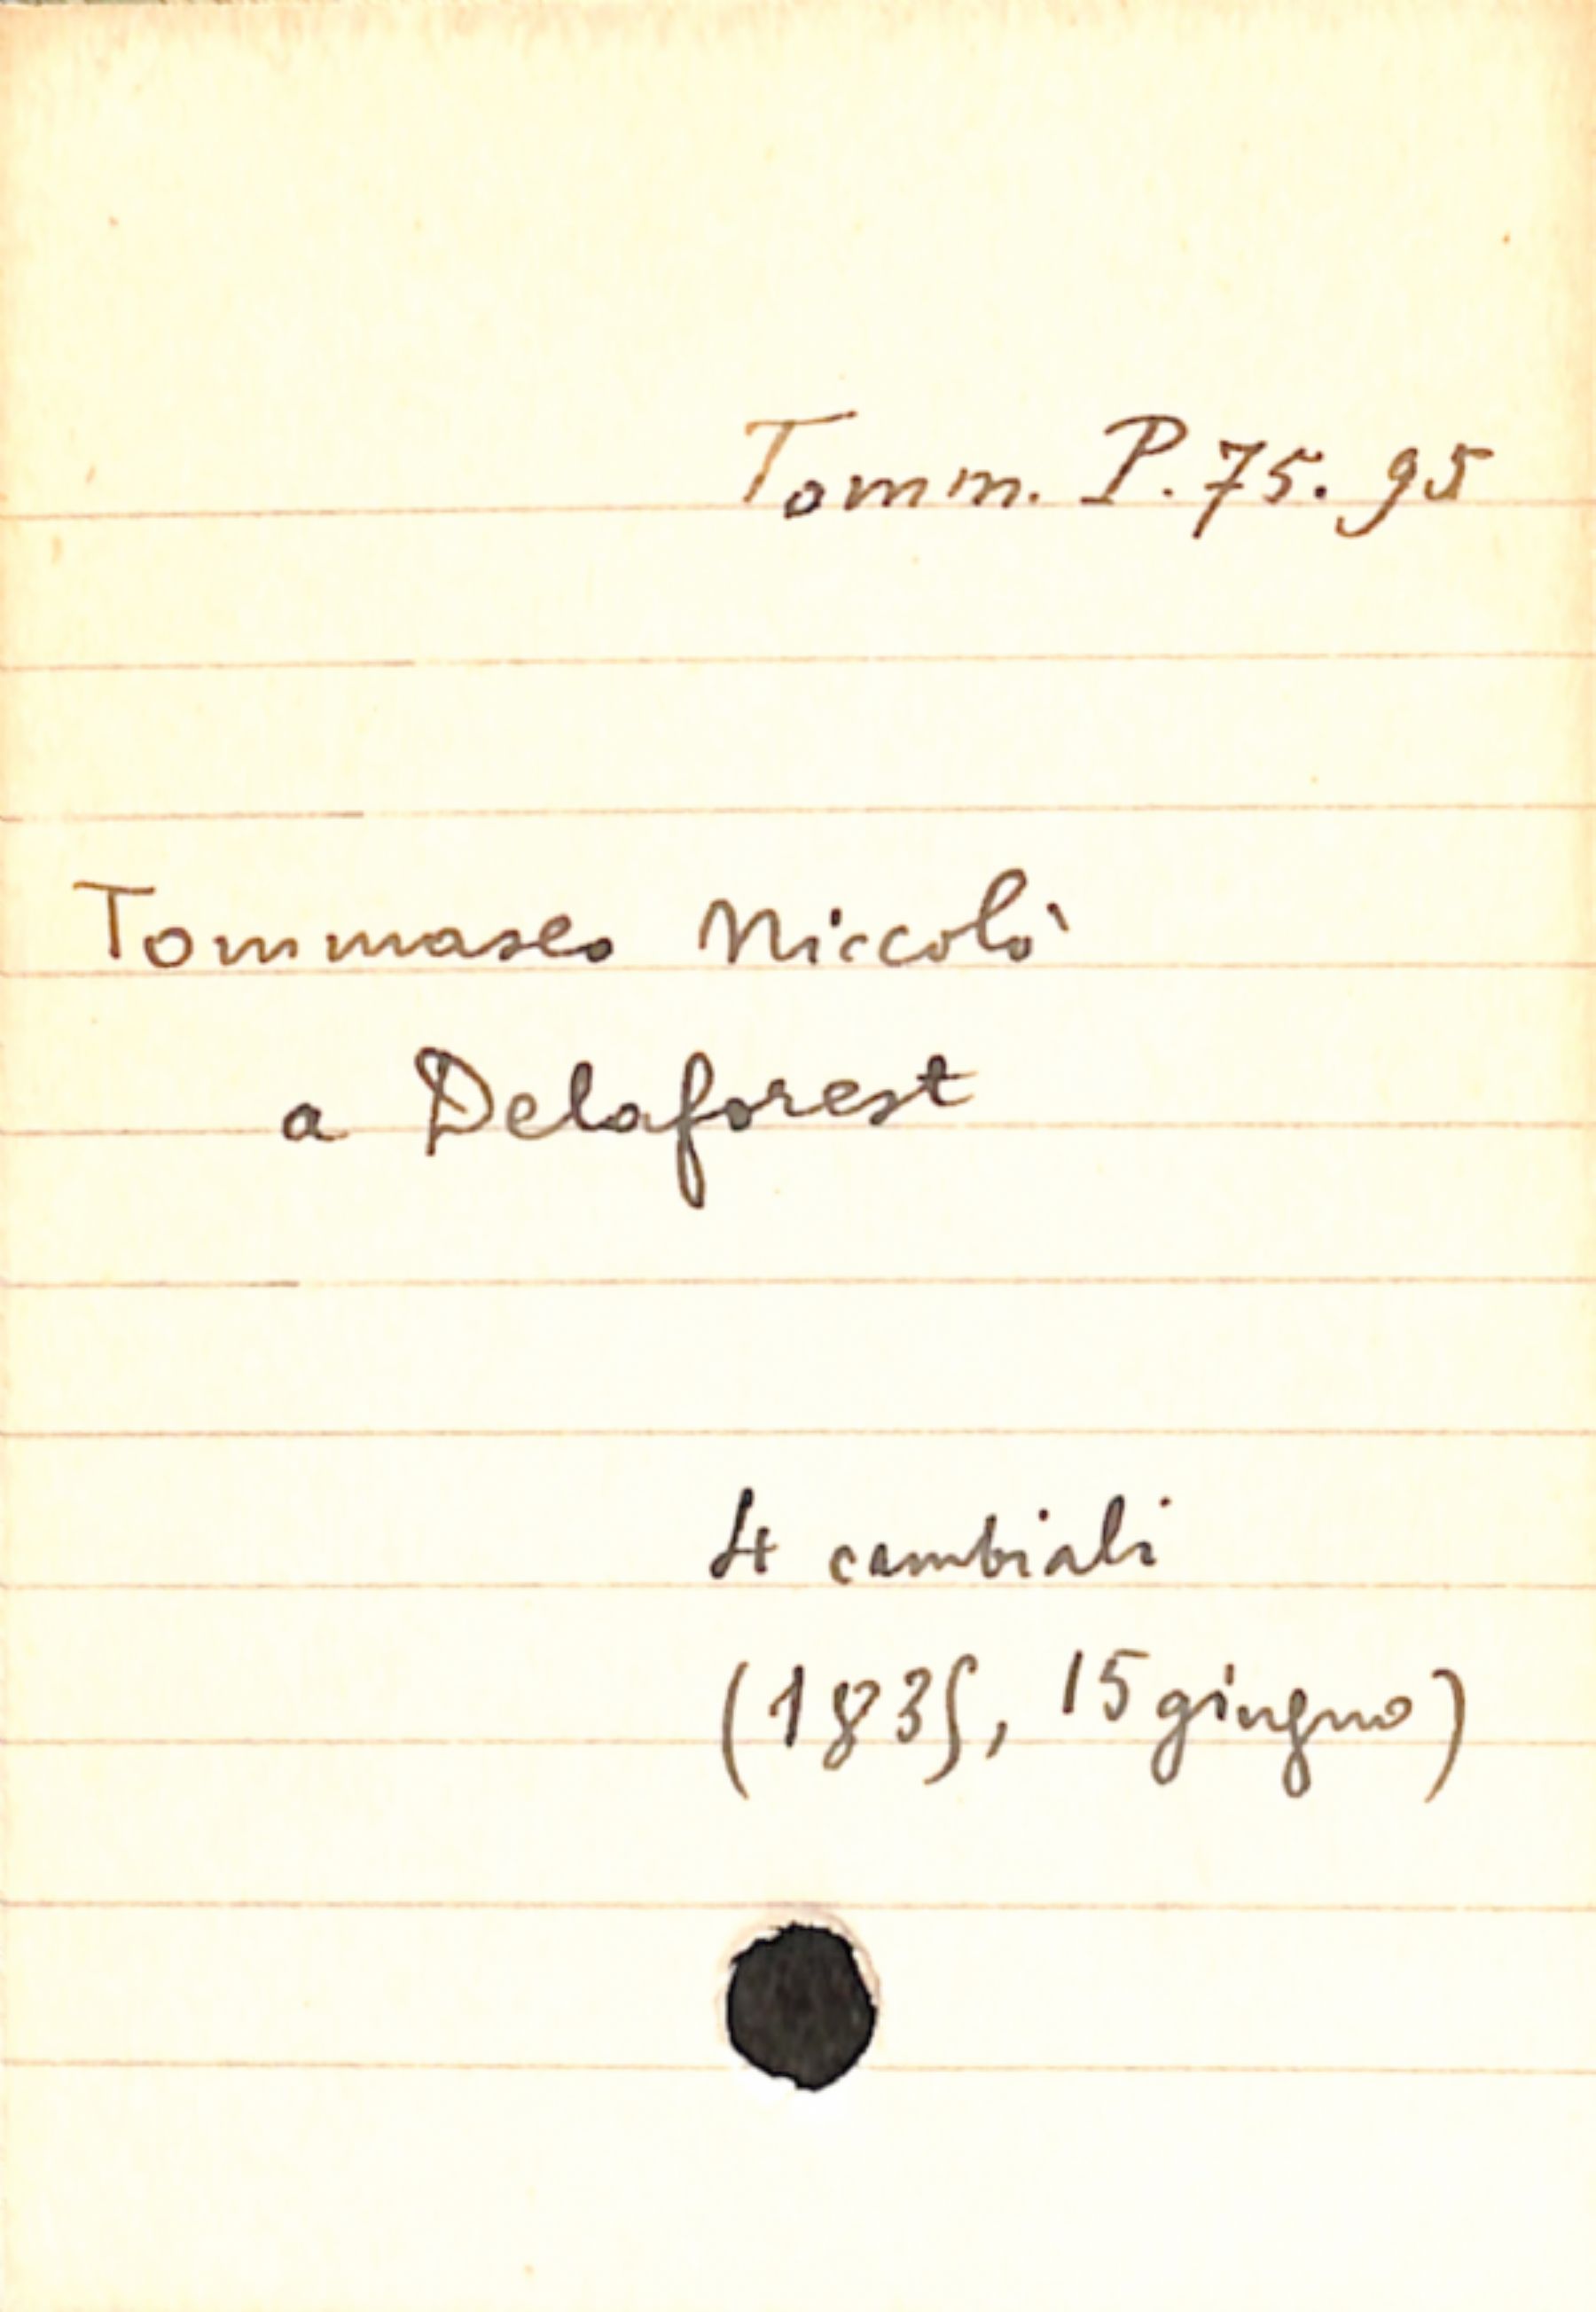 Tomm. P. 75. 95
Tommaseo Niccolò
a Delaforest
4 cambiali
(1835, 15 giugno)